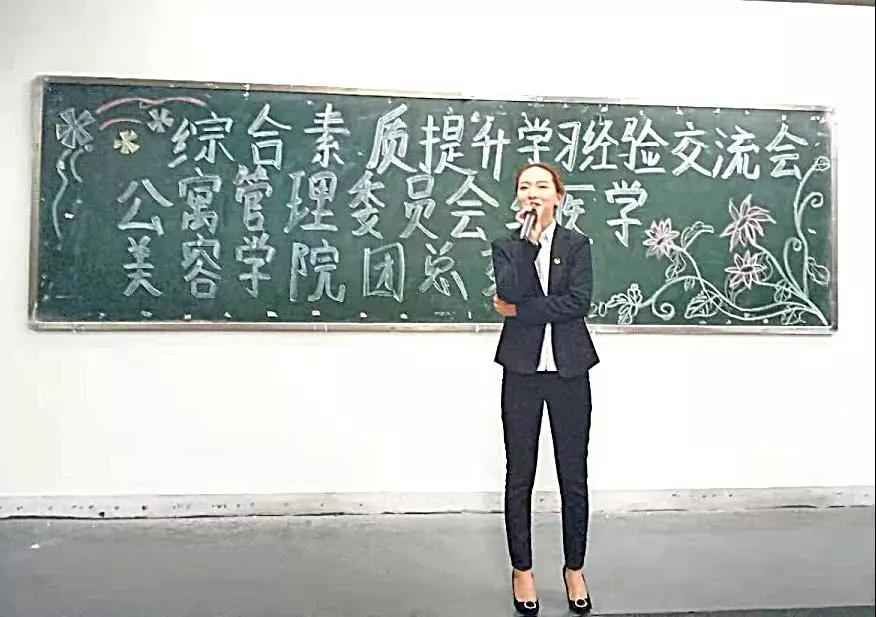 综合素质提升学习经验交流会
公寓管理委员会 医学
美容学院团总
20